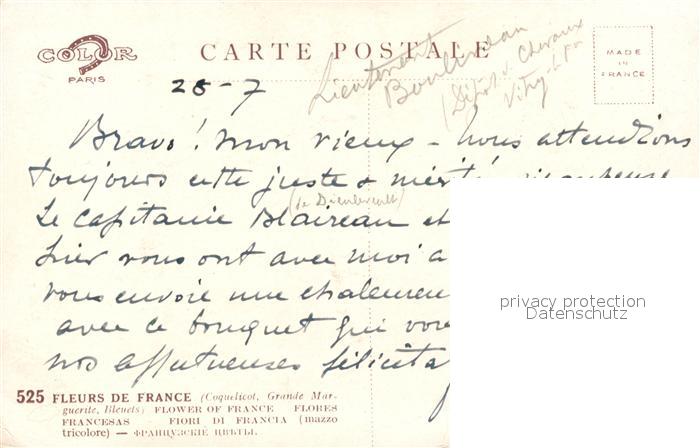 COLOR
PARIS
CARTE POSTALE
MADE
IN
FRANCE
Lieutenant
(Dépôt de Chevaux
Vitry
28-7
Bravo! mon vieux - nous attendions
toujours cette juste & récompense
(de Dieulevult)
Le Capitaine Blaireau et
hier vous ont avec moi a
vous envoie une chaleureu
avec ce bouquet qui vou
nos affectueuses félicita
privacy protection
Datenschutz
525 FLEURS DE FRANCE (Coquelicot, Grande Mar-
guerite, Bleuets) FLOWER OF FRANCE FLORES
FRANCESAS FIORI DI FRANCIA (mazzo
tricolore) — ФРАНЦУЗСКІЕ ЦВѢТЫ.